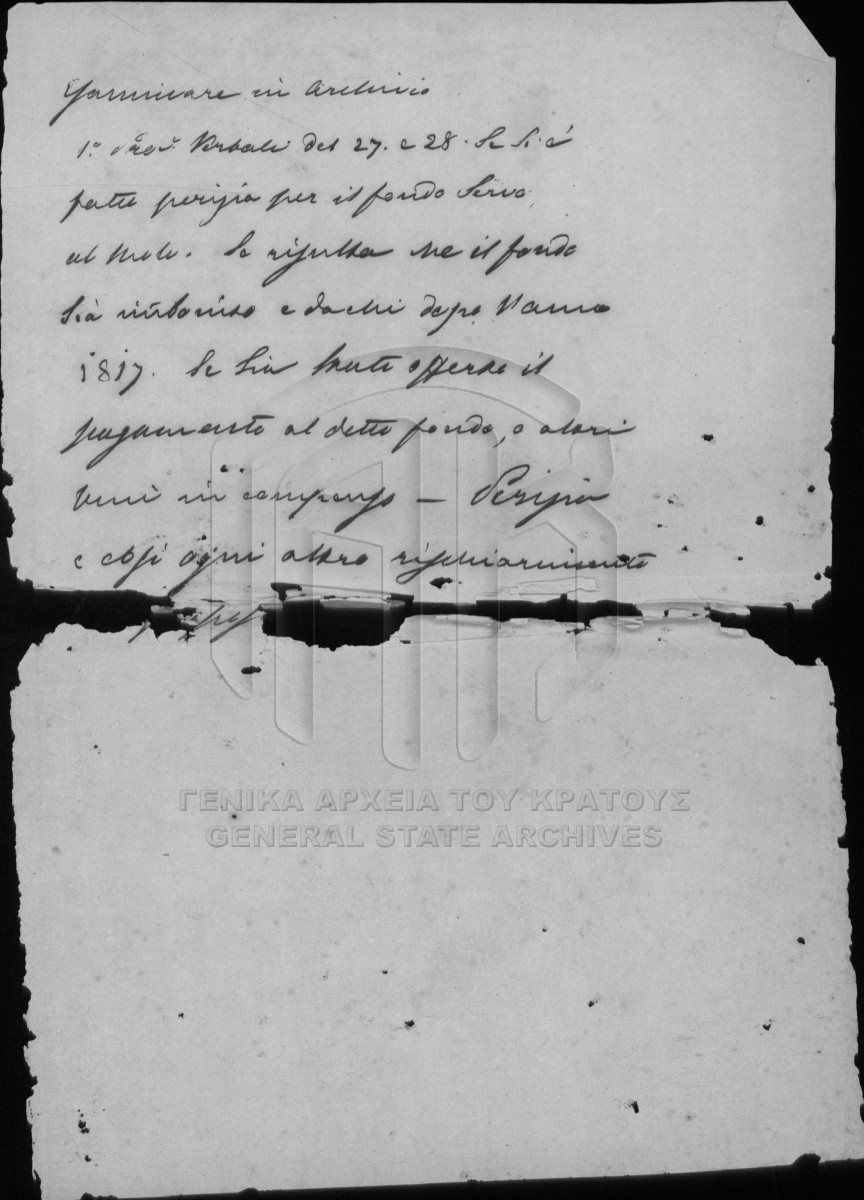 Esaminare in Archivio
1.º Verbali del 27. e 28. Se si è
fatta perizia per il fondo Servo
al Molo. Se risulta che il fondo
sia e da chi dopo l'anno
1817. Se sia stato offerto il
pagamento al detto fondo, o altri
beni in compenso — Perizia
e così ogni altro rischiarimento
ΓΕΝΙΚΑ ΑΡΧΕΙΑ ΤΟΥ ΚΡΑΤΟΥΣ
GENERAL STATE ARCHIVES